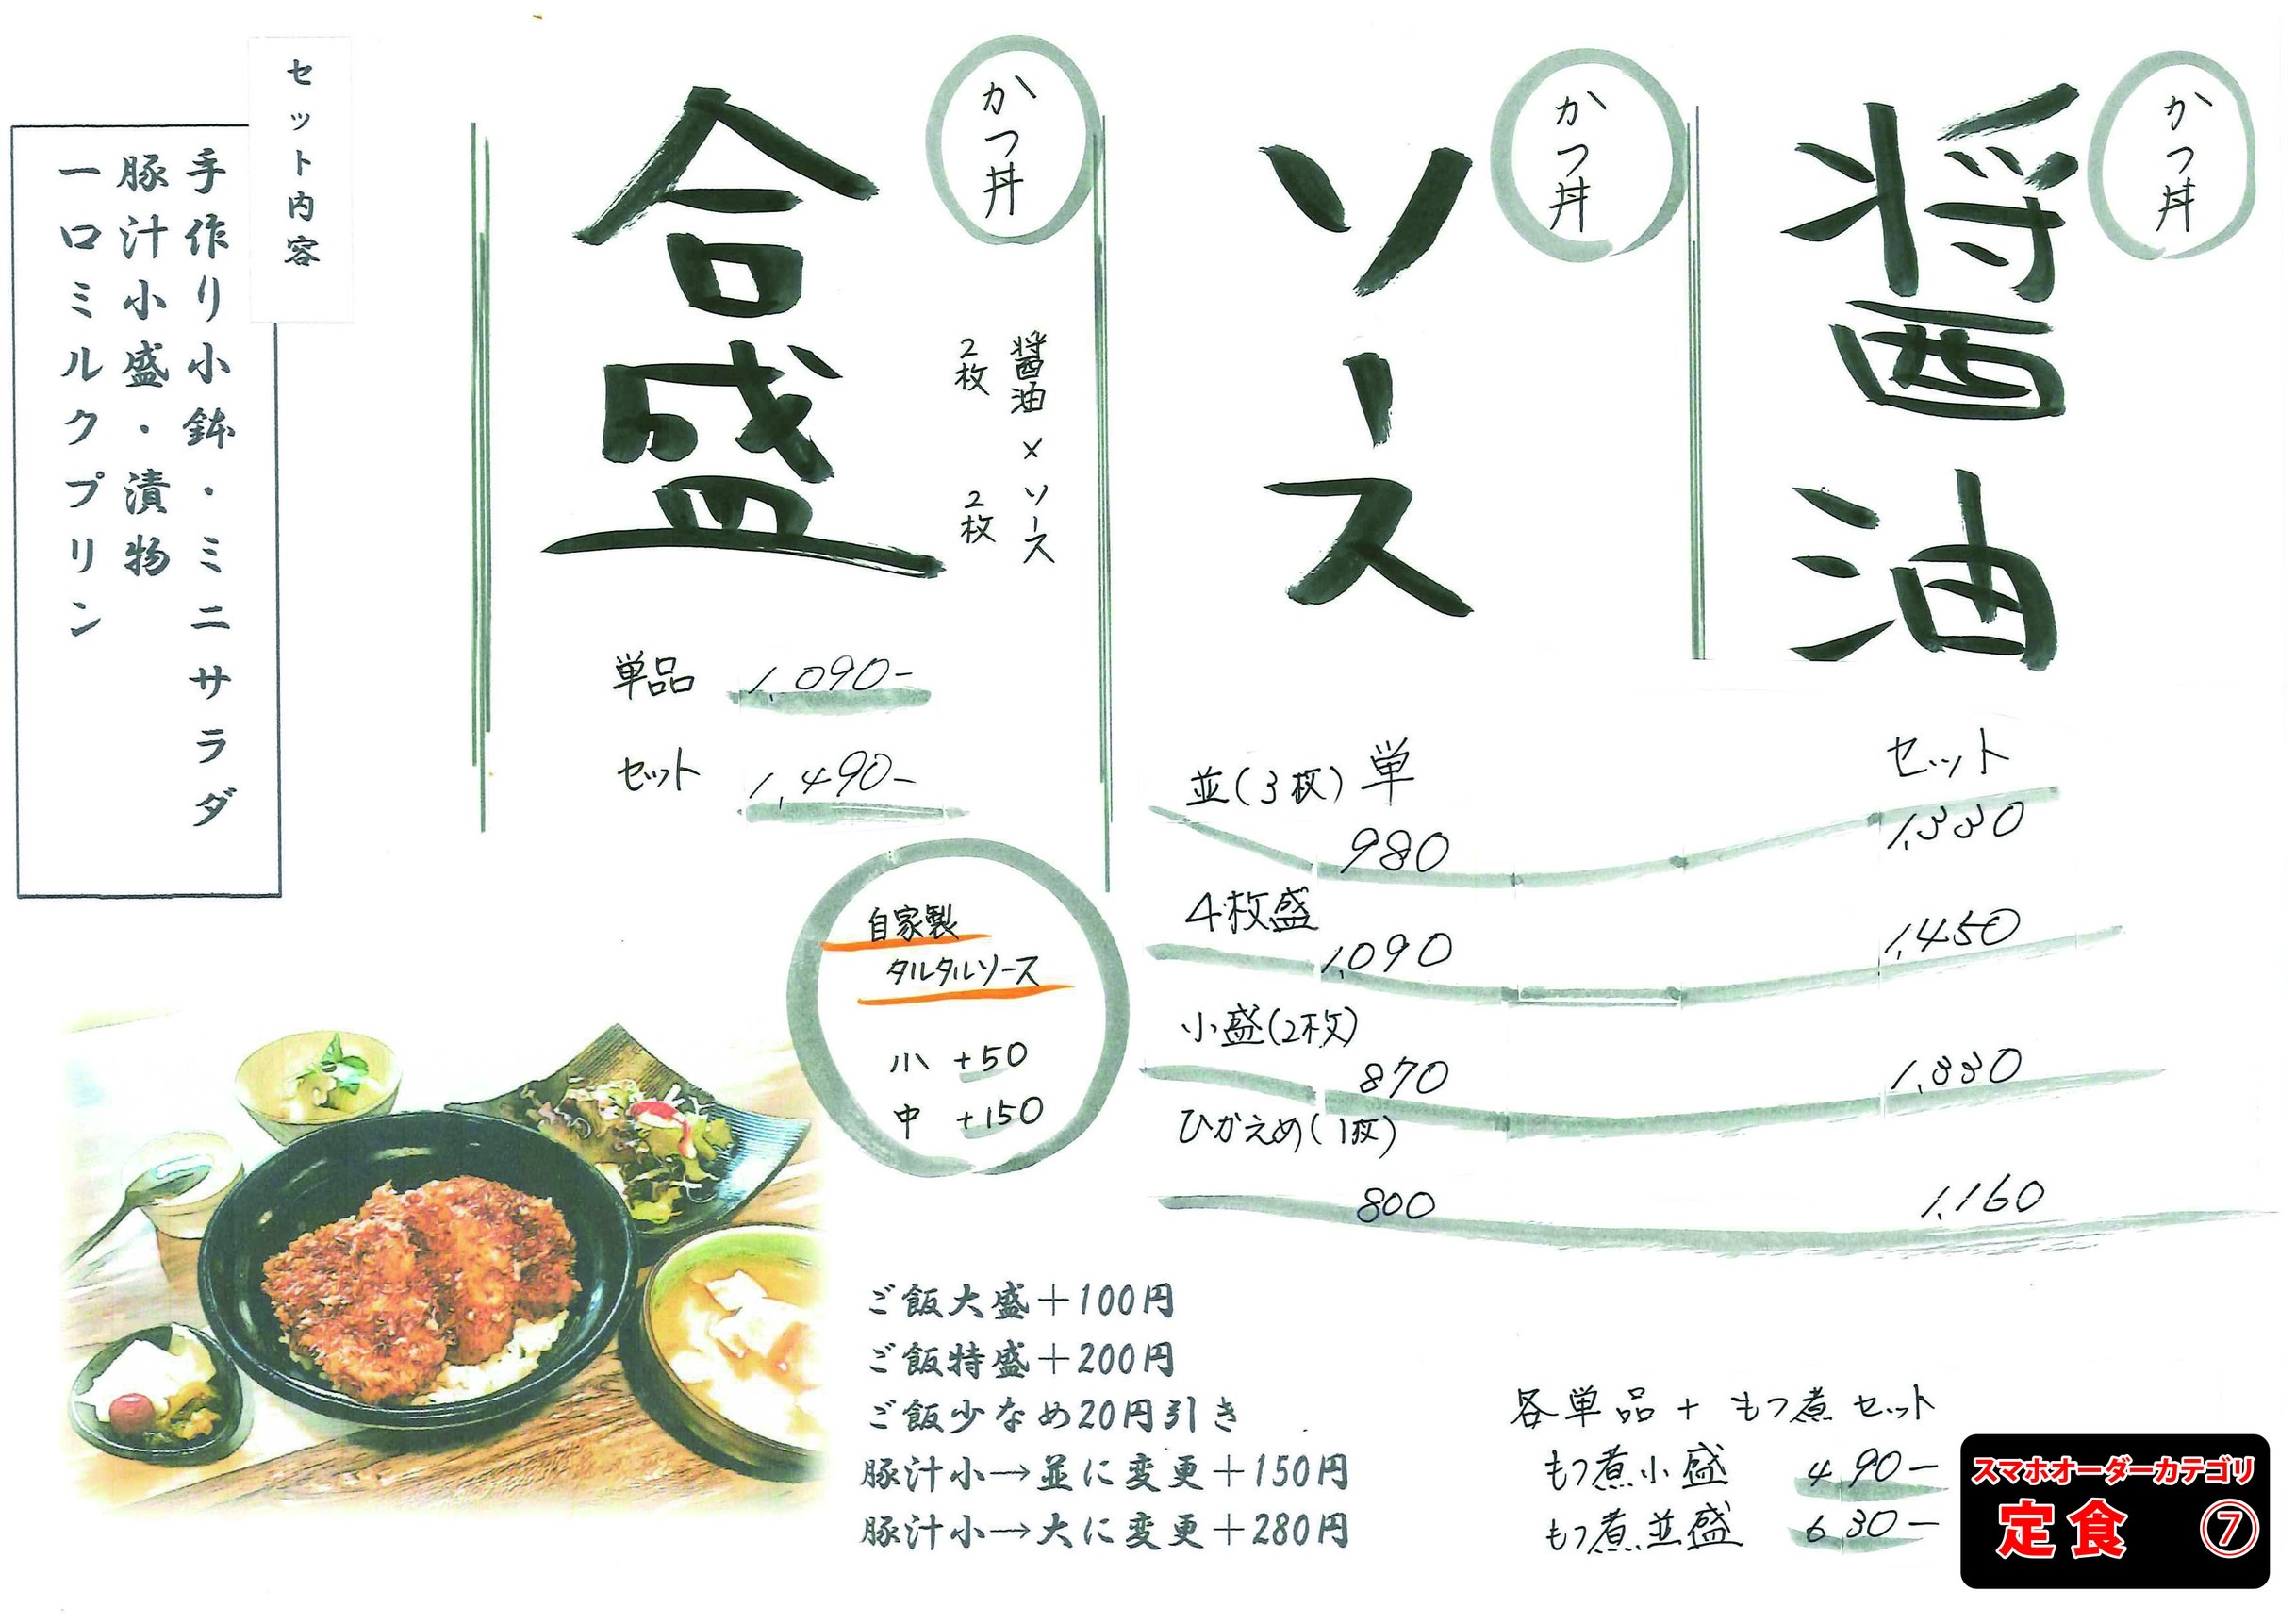 かつ丼
醤油
かつ丼
ソース
かつ丼
合盛
醤油×ソース
2枚 2枚
単品 1,090-
セット 1,490-
セット内容
手作り小鉢・ミニサラダ
豚汁小盛・漬物
一口ミルクプリン
並(3枚) 単 セット
980 1,330
4枚盛
1,090 1,450
小盛(2枚)
870 1,330
ひかえめ(1枚)
800 1,160
自家製
タルタルソース
小 +50
中 +150
ご飯大盛+100円
ご飯特盛+200円
ご飯少なめ20円引き
豚汁小→並に変更+150円
豚汁小→大に変更+280円
各単品+もつ煮セット
もつ煮小盛 490-
もつ煮並盛 630-
スマホオーダーカテゴリ
定食 ⑦